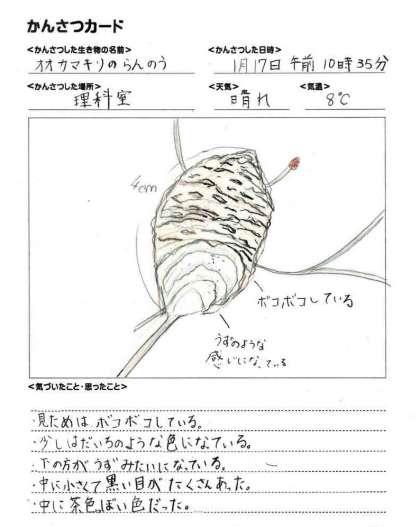 かんさつカード
<かんさつした生き物の名前> <かんさつした日時>
オオカマキリのらんのう 1月17日 午前10時35分
<かんさつした場所> <天気> <気温>
理科室 晴れ 8℃
4cm
ボコボコしている
うずのような
感じになっている
<気づいたこと・思ったこと>
・見ためはボコボコしている。
・少しはだいろのような色になっている。
・下の方がうずみたいになっている。
・中に小さくて黒い目がたくさんあった。
・中に茶色っぽい色だった。